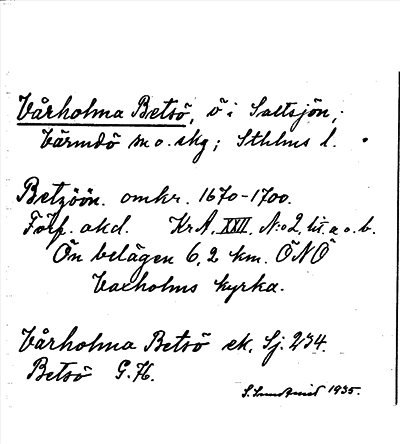 Vårholma Betsö, ö i Saltsjön,
Värmdö sn o. skg; Sthlms l.
Betzöön. omkr. 1670-1700.
Förf. akd. KrA. XXII, N:o 2, lit. a o. b.
Ön belägen 6,2 km. ÖNÖ
Vaxholms kyrka.
Vårholma Betsö ek. Sj. 234.
Betsö G.
1935.